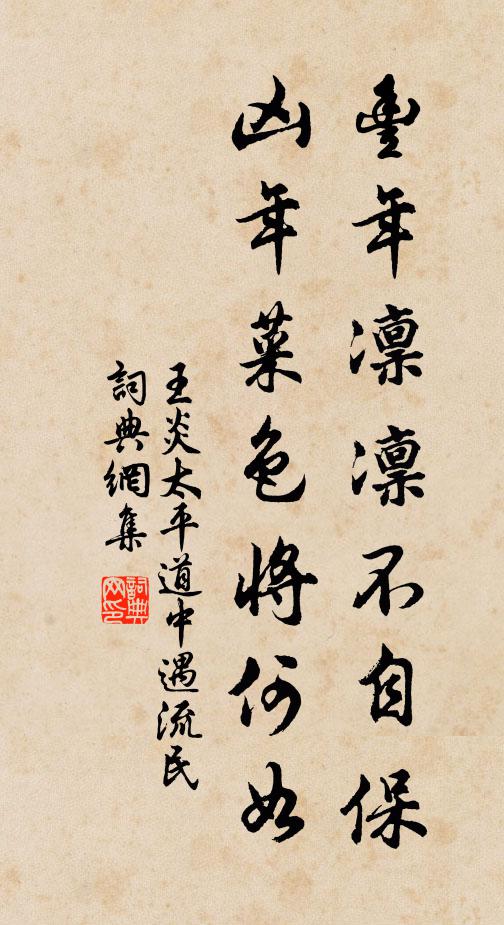 豐年凛凛不自保
凶年菜色將何如
王炎太平道中遇流民
詞典網集
詞典
网印